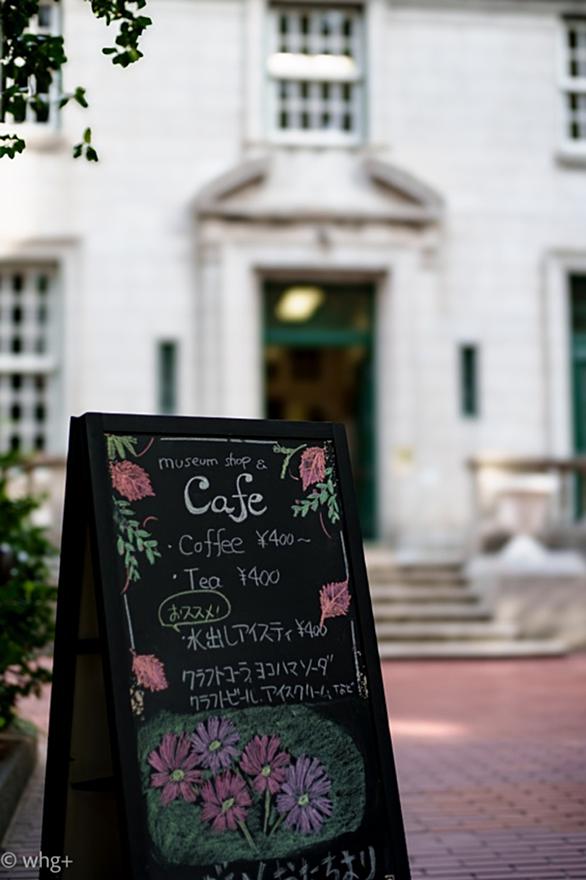 museum shop &
Cafe
・Coffee ¥400～
・Tea ¥400
おススメ！
・水出しアイスティ ¥400
クラフトコーラ、ヨコハマソーダ
クラフトビール、アイスクリーム、など
© whg+